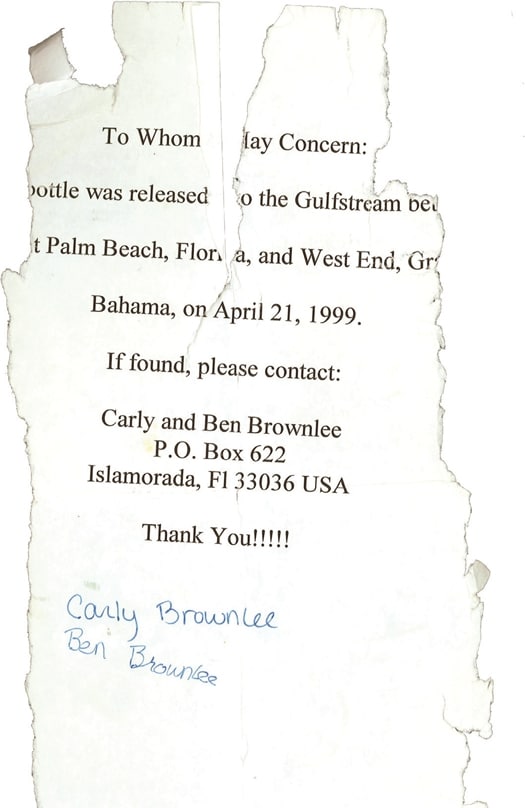 To Whom ay Concern:
ottle was released o the Gulfstream be
t Palm Beach, Flor a, and West End, Gr
Bahama, on April 21, 1999.
If found, please contact:
Carly and Ben Brownlee
P.O. Box 622
Islamorada, Fl 33036 USA
Thank You!!!!!
Carly Brownlee
Ben Brownlee